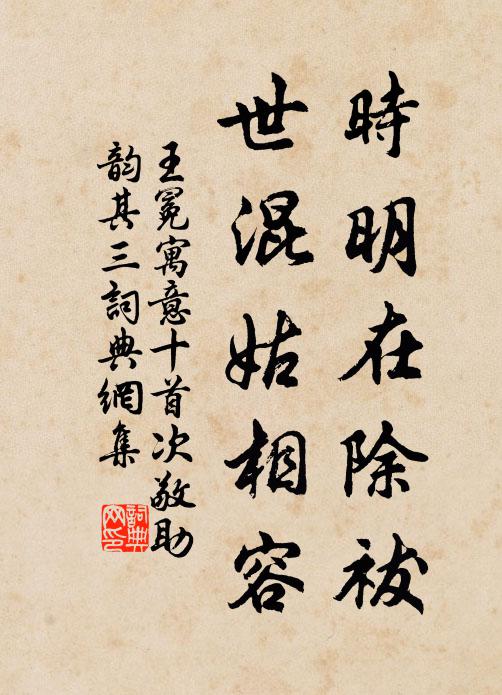 時明在除祓
世混姑相容
王冕寓意十首次敬助
韵其三詞典網集
詞典网印